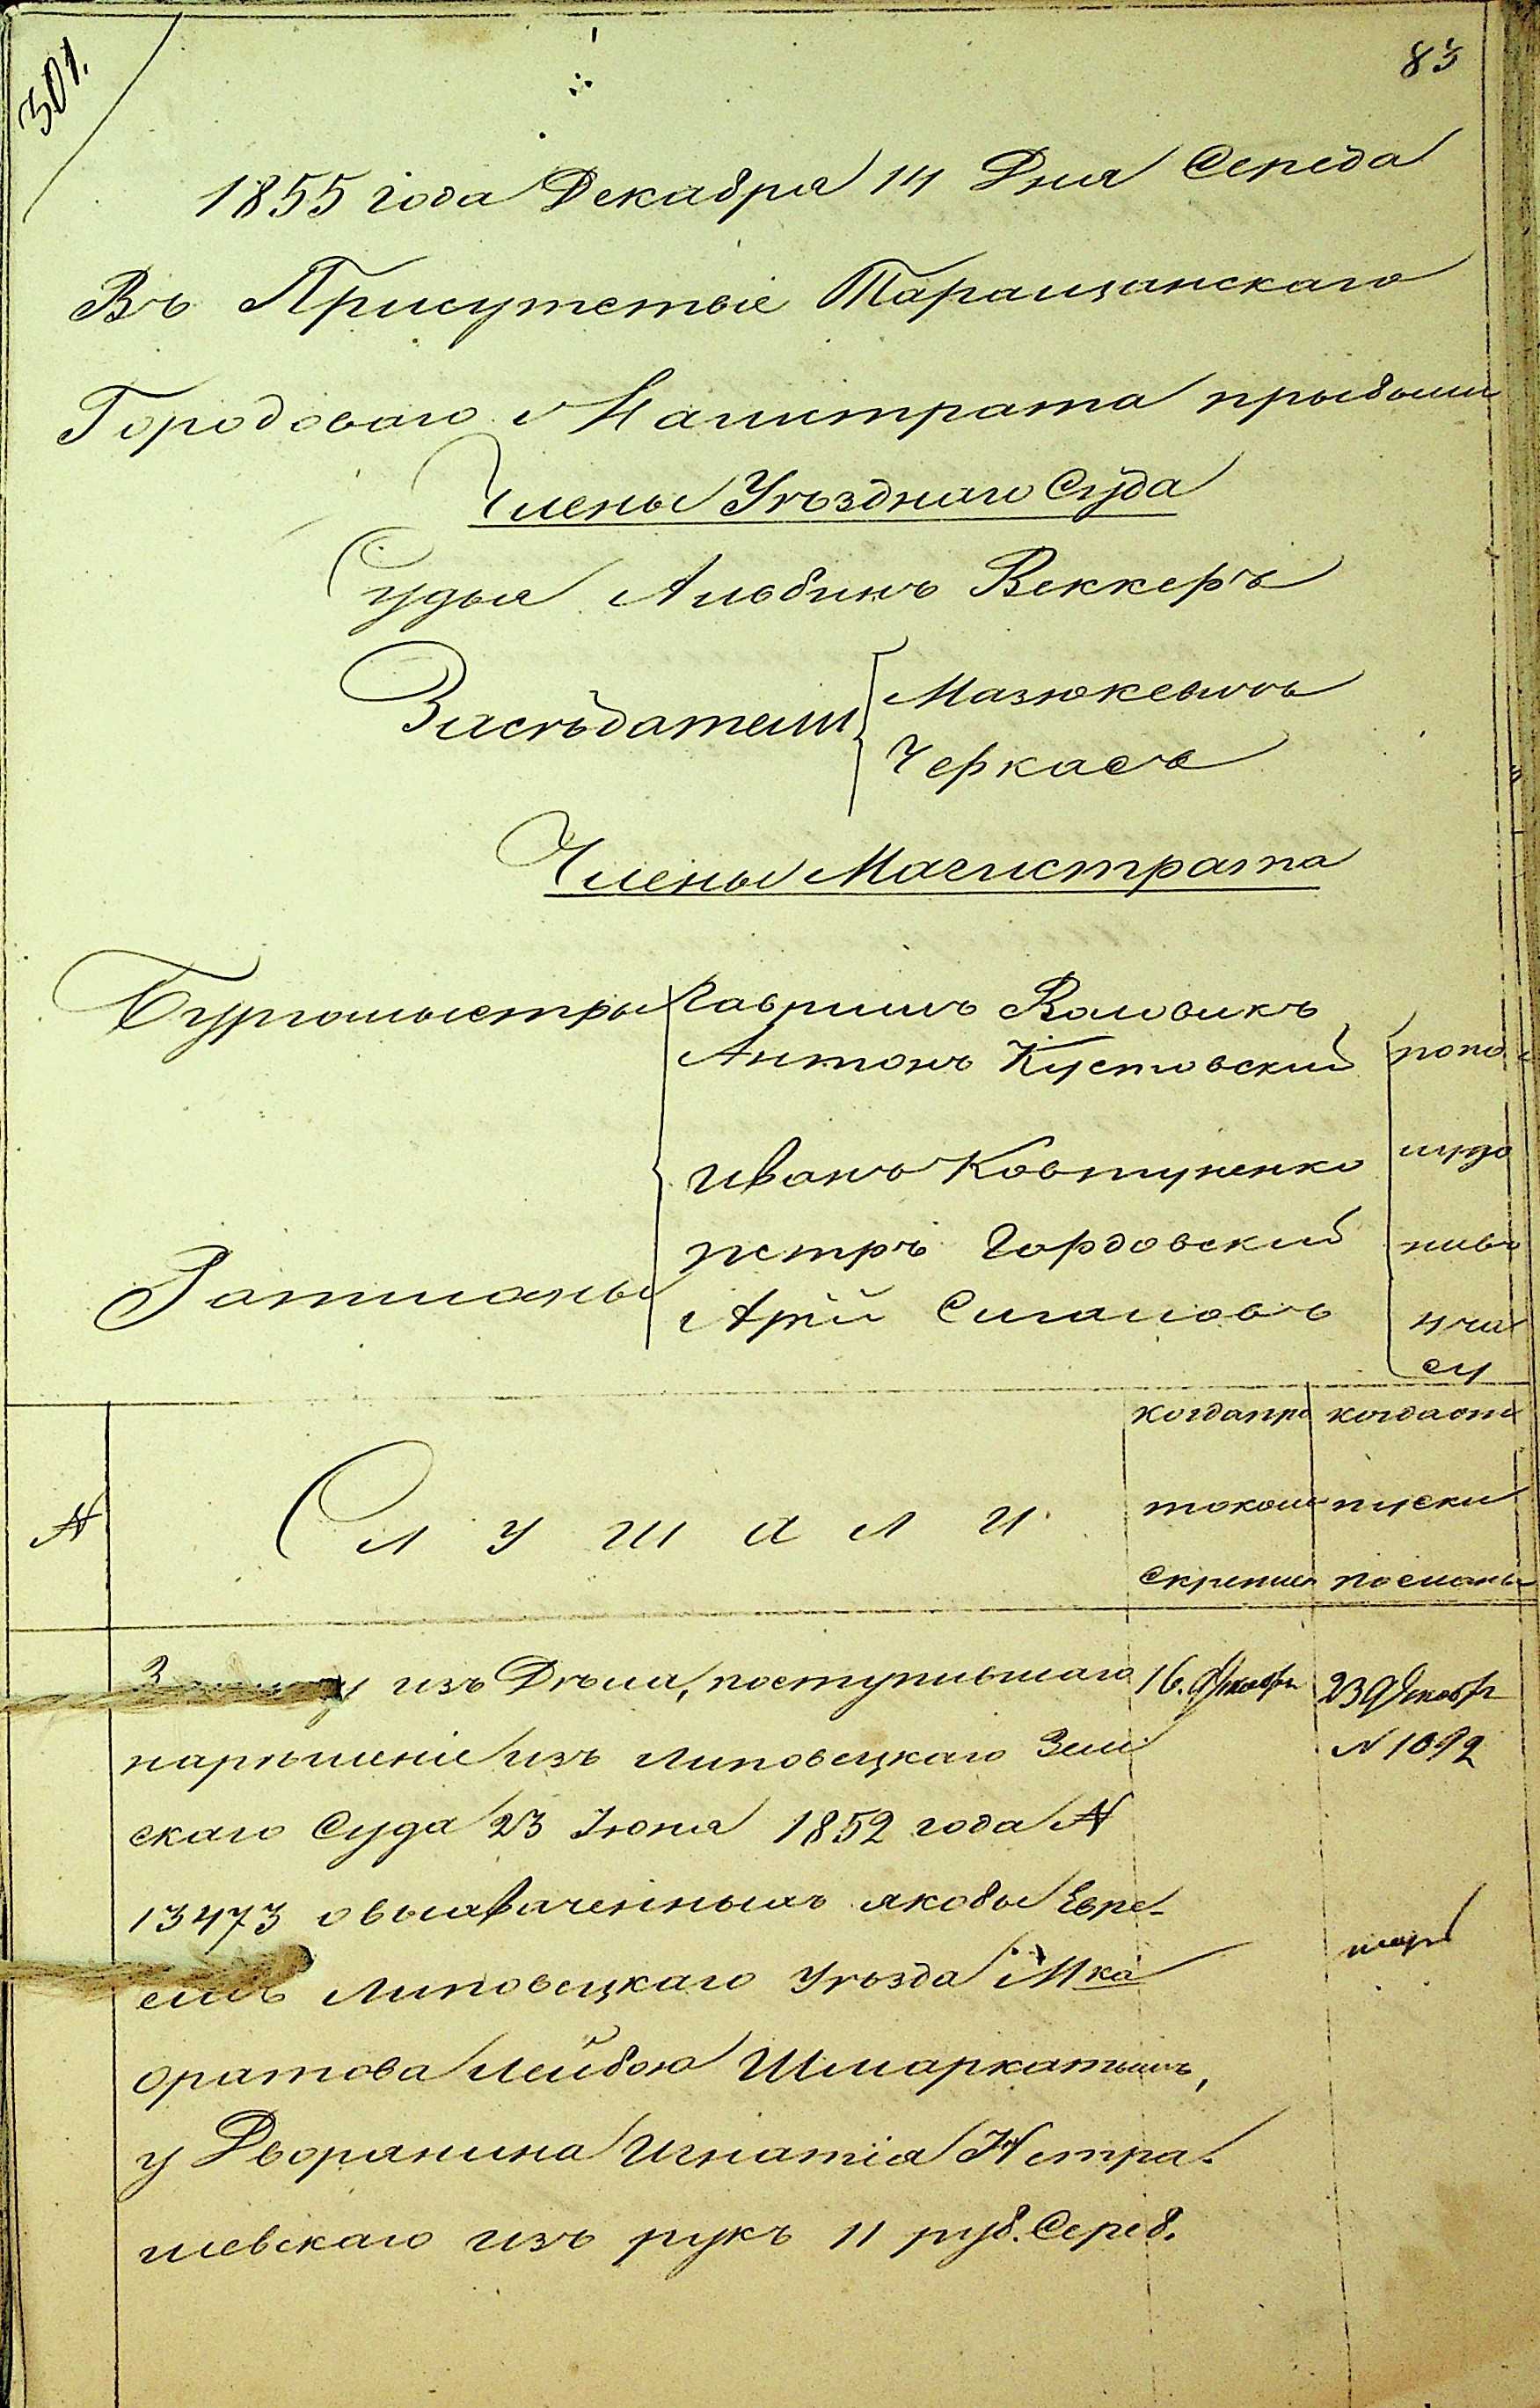 301.
83
1855 года Декабря 14 Дня Середа
Въ Присутствіе Таращанскаго
Городоваго Магистрата прыбыли
Члены Уѣзднаго Суда
Судья Альбинъ Веккеръ
Засѣдатели Мазюкевичъ
Черкасъ
Члены Магистрата
Бургомыстры Гаврилъ Воловикъ
Антонъ Кустовский
Иванъ Ковтуненко
Ратманы Петръ Гордовский
Арій Сигаловъ
попо
лудо
нивъ
4 ча
су
№
Слушали
когда про
токолъ
скрепленъ
когда отъ
пуски
посланы
изъ Дѣла, поступившаго
нарѣшеніе изъ Липовецкаго Зем
скаго Суда 23 Іюня 1852 года №
13473 о выхваченныхъ якобы Евре-
емъ Липовецкаго Уѣзда Мка
Оратова Лейбою Шмаркатымъ,
у Дворянина Игнатія
шевскаго изъ рукъ 11 руб. Сереб.
16. Декабря
23 Декабр
№ 1092